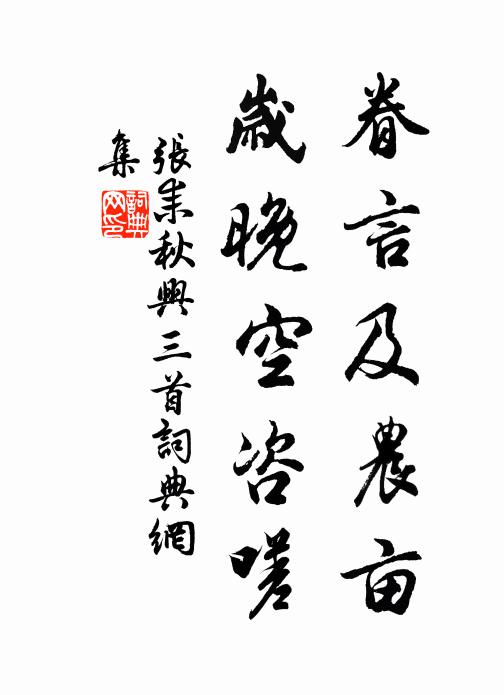 眷言及農亩
歲晚空咨嗟
張耒秋興三首詞典網
集
詞典
网印